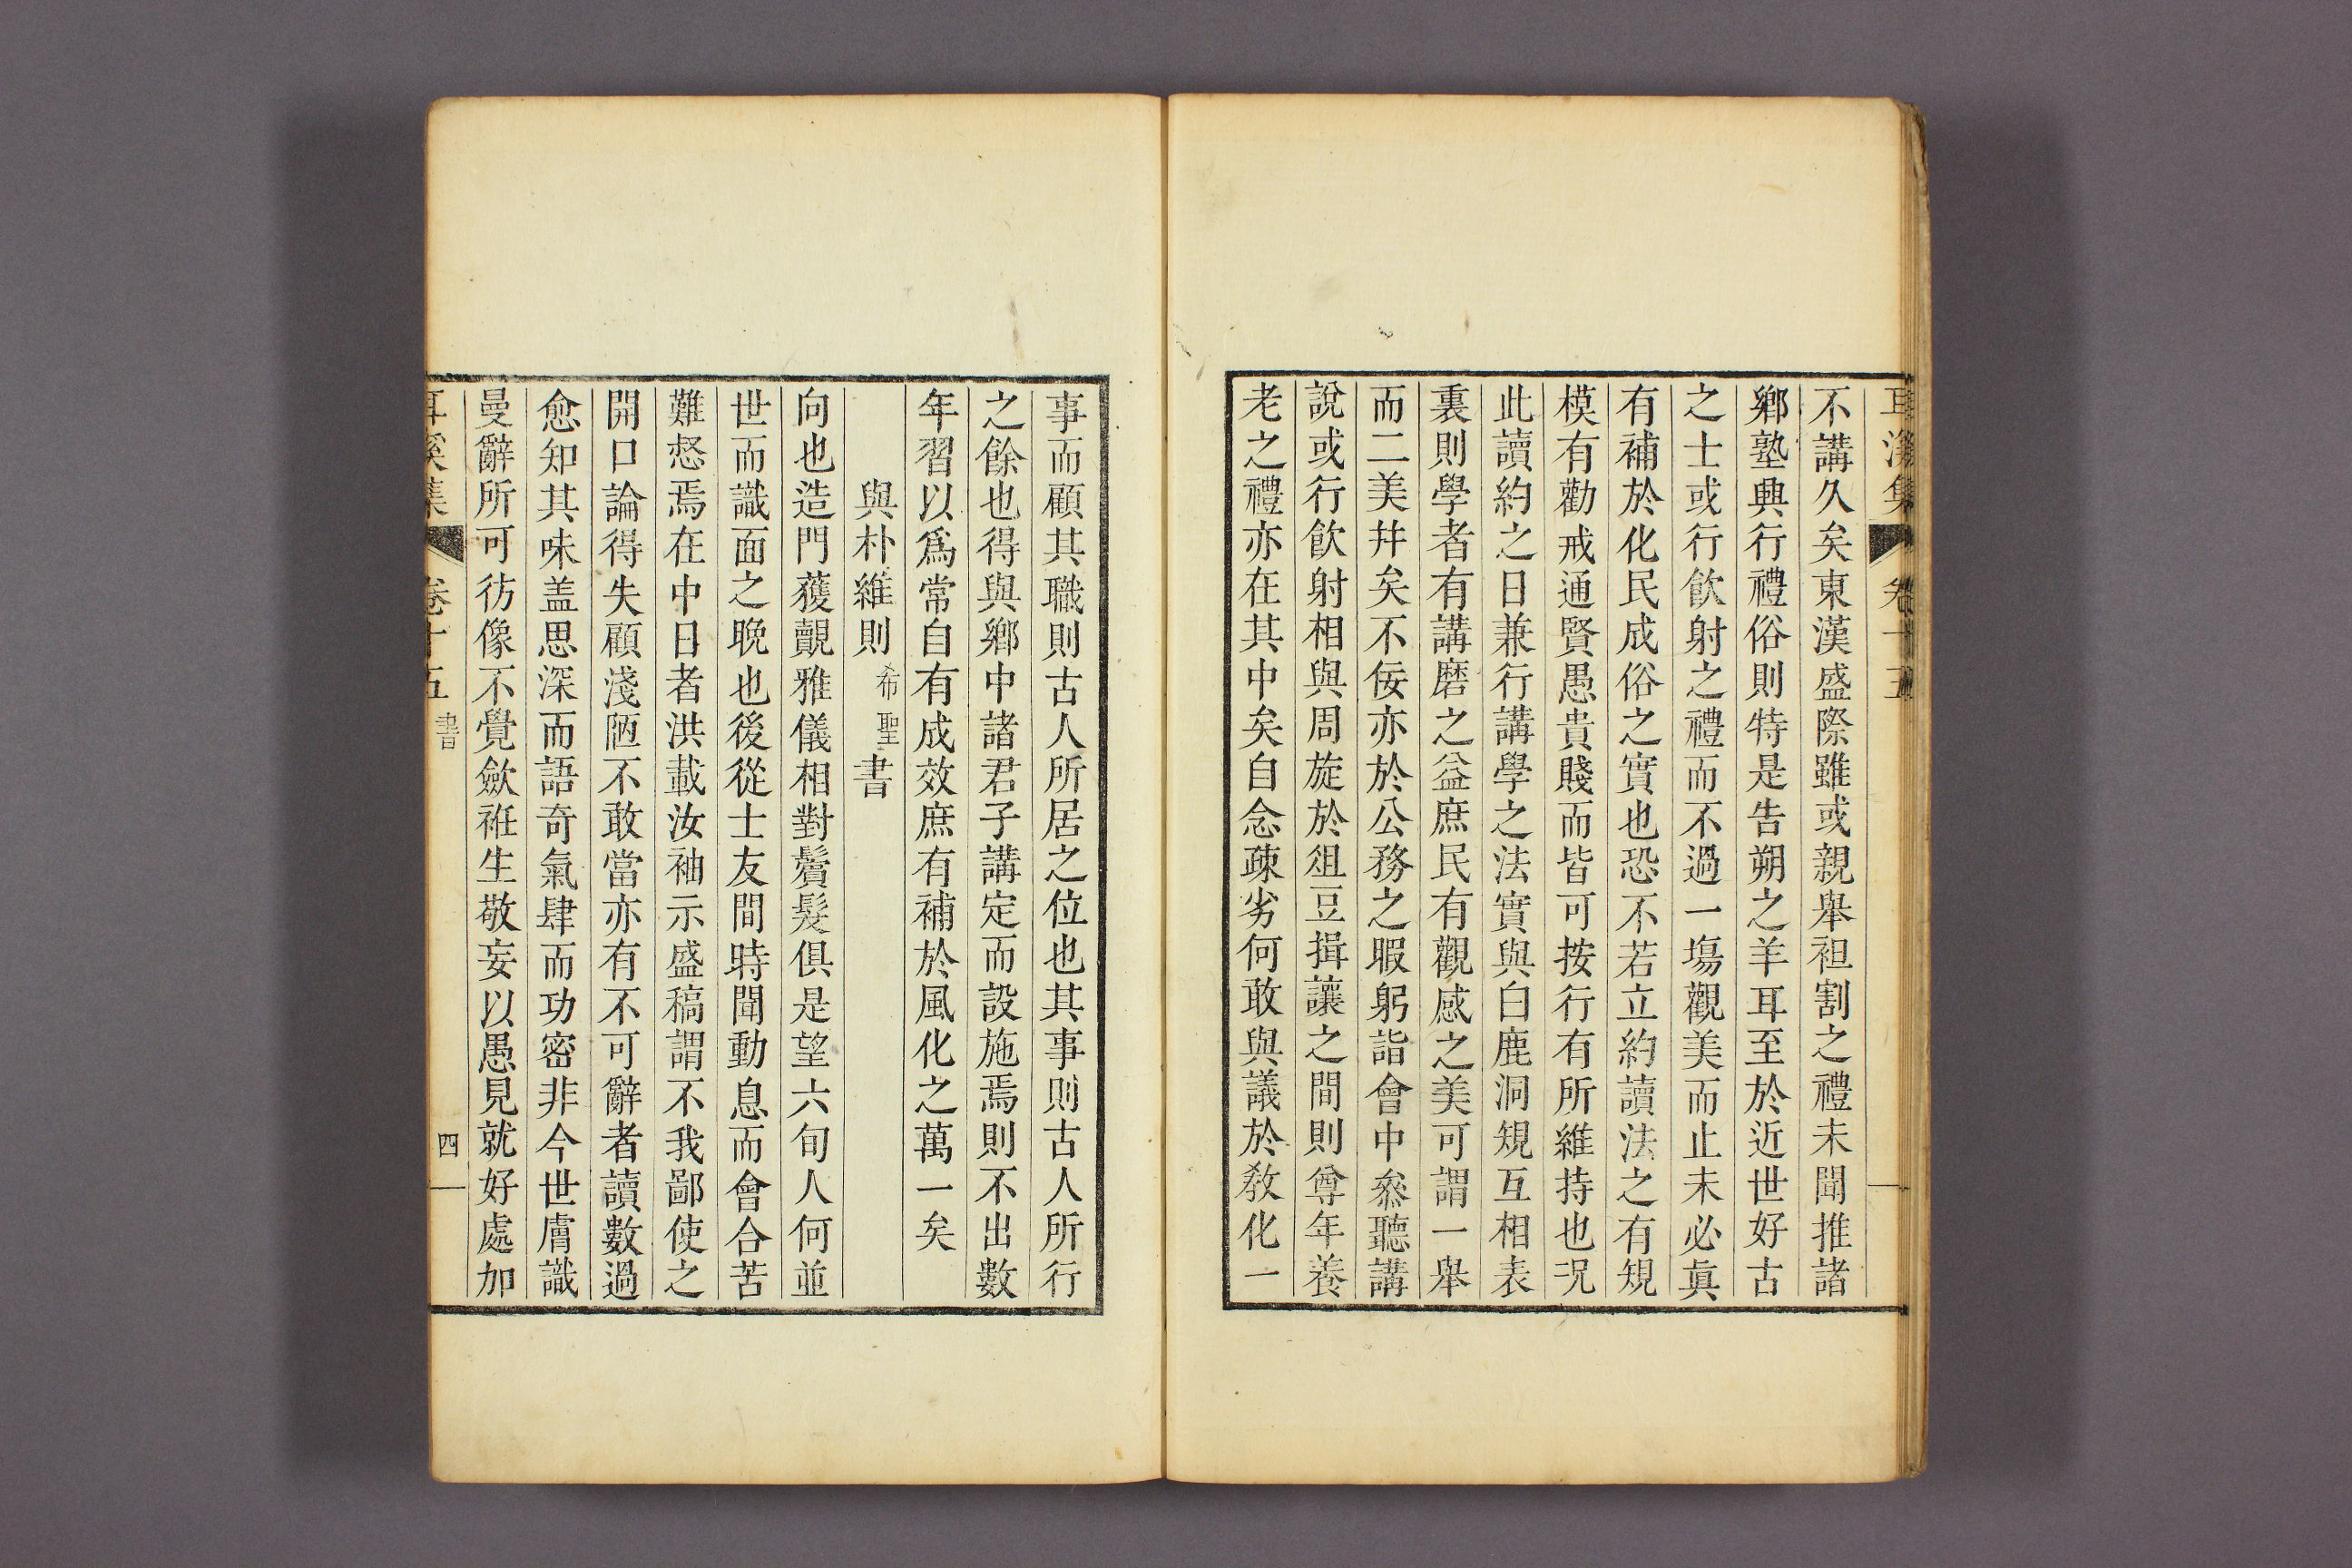 耳溪集 卷十五
不講久矣東漢盛際雖或親舉袒割之禮未聞推諸
鄕塾興行禮俗則特是告朔之羊耳至於近世好古
之士或行飮射之禮而不過一塲觀美而止未必眞
有補於化民成俗之實也恐不若立約讀法之有規
模有勸戒通賢愚貴賤而皆可按行有所維持也况
此讀約之日兼行講學之法實與白鹿洞規互相表
裏則學者有講磨之益庶民有觀感之美可謂一舉
而二美幷矣不佞亦於公務之暇躬詣會中叅聽講
說或行飮射相與周旋於俎豆揖讓之間則尊年養
老之禮亦在其中矣自念疎劣何敢與議於敎化一
事而顧其職則古人所居之位也其事則古人所行
之餘也得與鄕中諸君子講定而設施焉則不出數
年習以爲常自有成效庶有補於風化之萬一矣
與朴維則希聖書
向也造門蒦觀雅儀相對鬢髮俱是望六旬人何並
世而識面之晩也後從士友間時聞動息而會合苦
難惄焉在中日者洪載汝袖示盛稿謂不我鄙使之
開口論得失顧淺陋不敢當亦有不可辭者讀數過
愈知其味盖思深而語奇氣肆而功密非今世膚識
曼辭所可彷像不覺歛袵生敬妄以愚見就好處加
耳溪集 卷十五 書 四